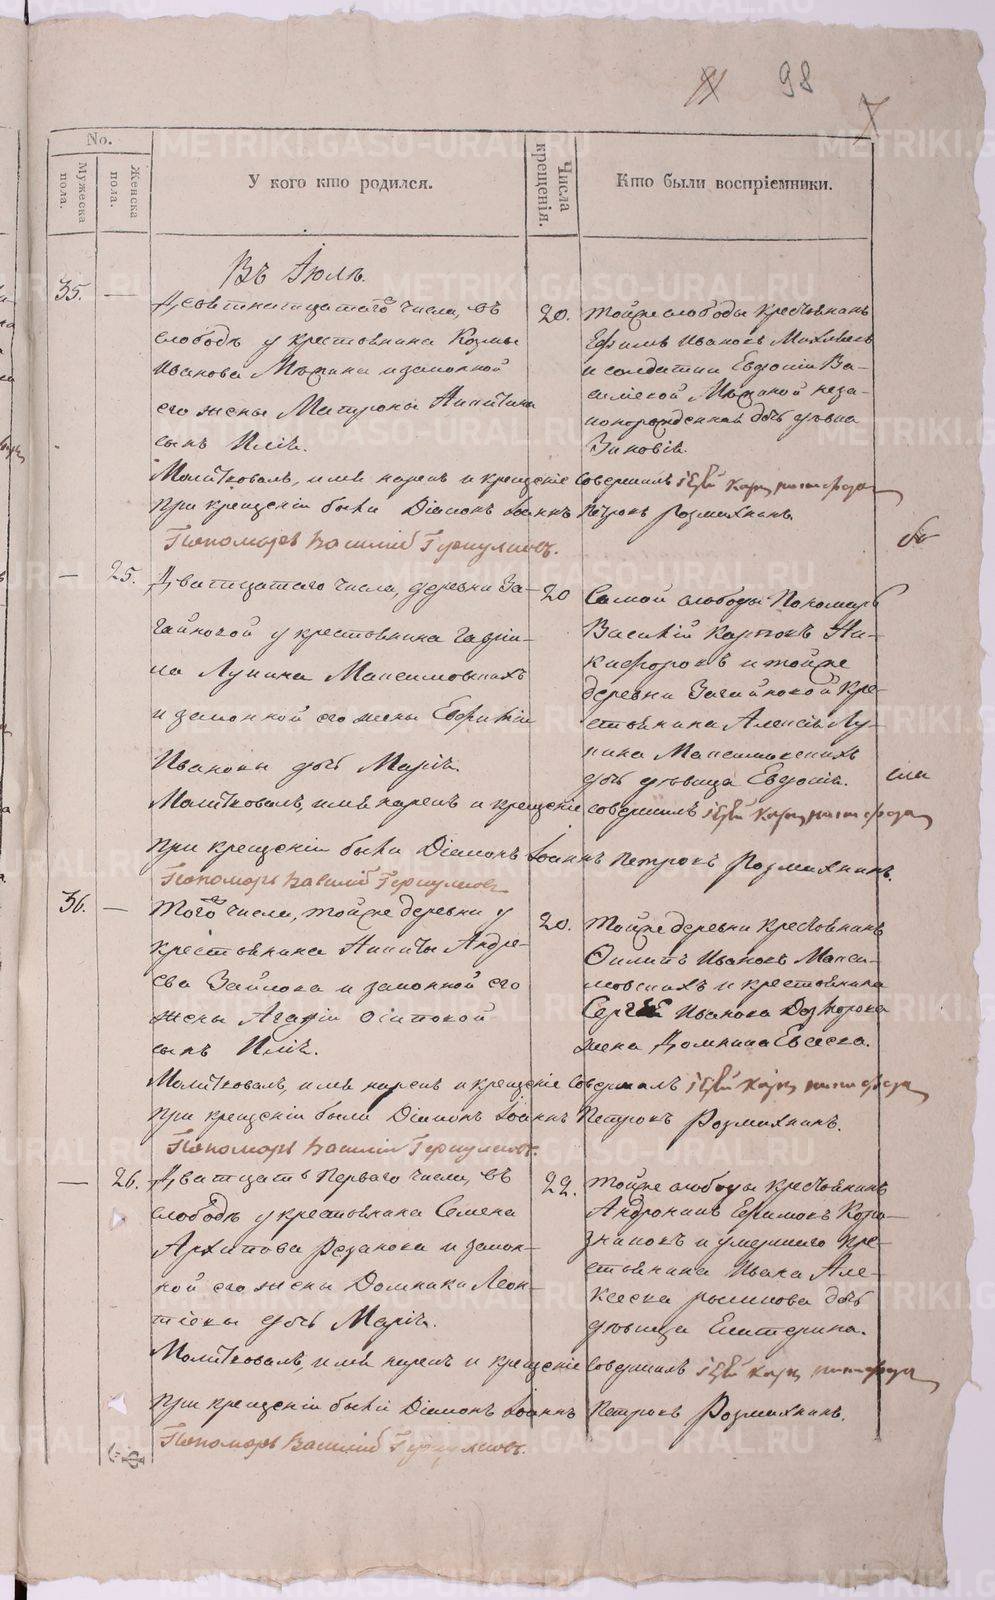 98
7
No.
Мужеска пола.
Женска пола.
У кого кто родился.
Числа крещенія.
Кто были воспріемники.
Въ Іюлѣ.
35. —
Девятнатцатаго числа, въ
слободѣ у крестьянина Козмы
Иванова и законной
его жены Матроны Никитины
сынъ Илія.
20.
тойже слободы крестьянинъ
Ефимъ Ивановъ
и солдатки Евдокіи Ва-
сильевой неза-
коннорожденная дочь дѣвка
Зиновія.
Молитвовалъ, имя нарекъ и крещеніе совершилъ Іерей
при крещеніи были Діаконъ Іоаннъ Петровъ Розмахнинъ.
Пономарь Василий
— 25.
Дватцатаго числа, деревни За-
гайновой у крестьянина Гаври-
ла Лунина Максимовскихъ
и законной его жены Евфиміи
Ивановы дочь Марія.
20
Самой слободы Пономарь
Василій Карповъ Ни-
кифоровъ и тойже
деревни Загайновой кре-
стьянина Алексія Лу-
нина Максимовскихъ
дочь дѣвица Евдокія.
Молитвовалъ, имя нарекъ и крещеніе совершилъ Іерей
при крещеніи были Діаконъ Іоаннъ Петровъ Розмахнинъ.
Пономарь Василий
36. —
Того числа, тойже деревни у
крестьянина Никиты Андре-
ева и законной его
жены Агафіи Осиповой
сынъ Илія.
20.
Тойже деревни крестьянинъ
Филипъ Ивановъ Макси-
мовскихъ и крестьянина
Сергѣя Иванова
жена Домника Евсеева.
Молитвовалъ, имя нарекъ и крещеніе совершалъ Іерей
при крещеніи были Діаконъ Іоаннъ Петровъ Розмахнинъ.
Пономарь Василий
— 26.
Дватцать перваго числа, въ
слободѣ у крестьянина Семена
Архипова Резанова и закон-
ной его жены Домники Леон-
тіевы дочь Марія.
22.
тойже слободы крестьянинъ
Андроникъ Ефимовъ
и умершаго кре-
стьянина Ивана Але-
ксеева дочь
дѣвица Екатерина.
Молитвовалъ, имя нарекъ и крещеніе совершилъ Іерей
при крещеніи были Діаконъ Іоаннъ Петровъ Розмахнинъ.
Пономарь Василий
METRIKI.GASO-URAL.RU